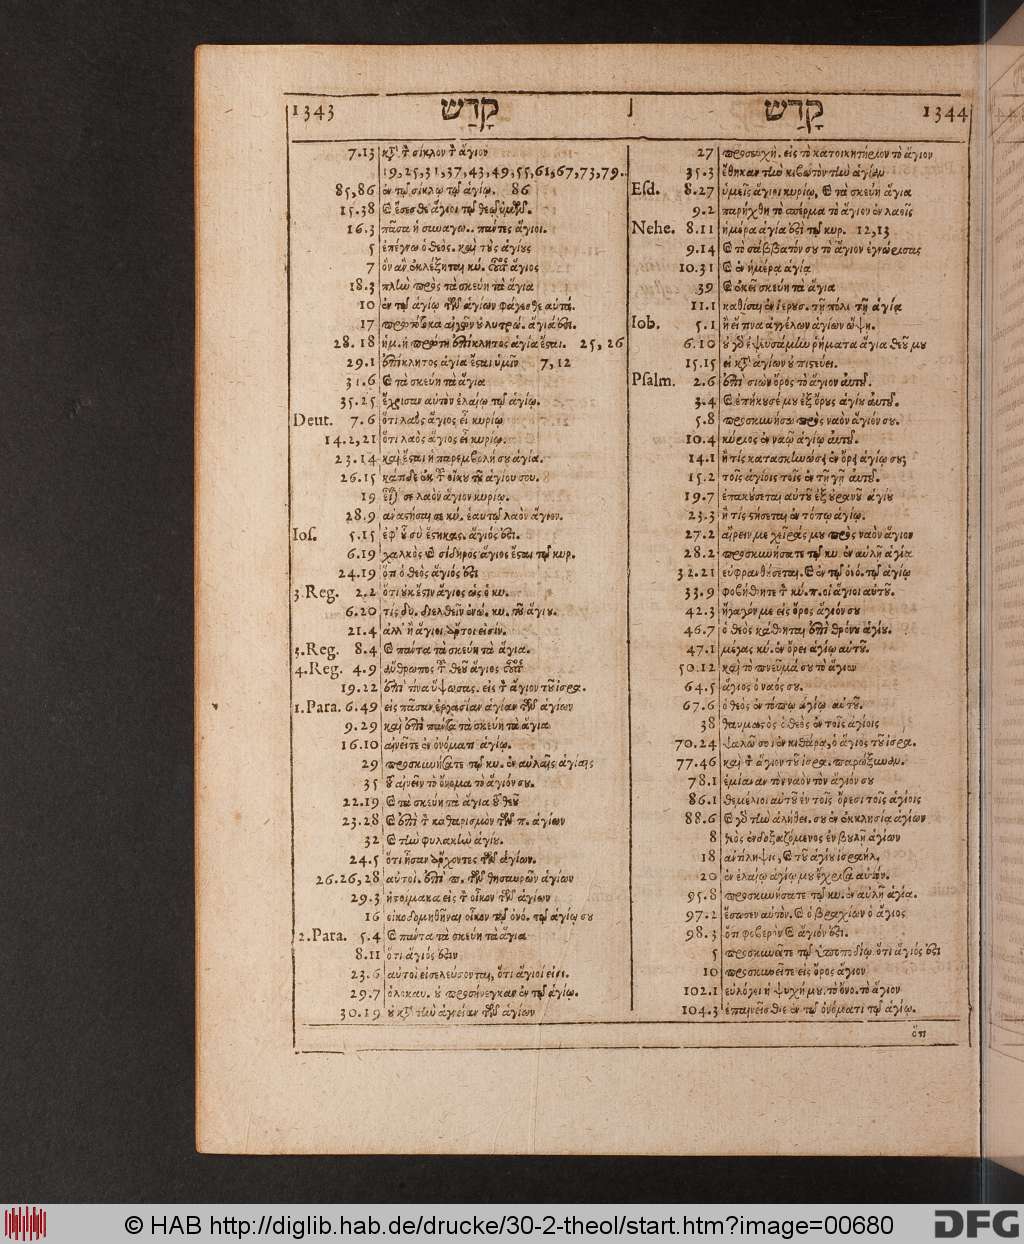 1343 קָדַשׁ קָדַשׁ 1344
7.13 κατὰ τὸν σίκλον τὸν ἅγιον
19,25,31,37,43,49,55,61,67,73,79.
85,86 ἐν τῷ σίκλῳ τῷ ἁγίῳ. 86
15.38 καὶ ἔσεσθε ἅγιοι τῷ θεῷ ὑμῶν.
16.3 πᾶσα ἡ συναγω.. πάντες ἅγιοι.
5 ἐπέγνω ὁ θεὸς. καὶ τοὺς ἁγίους
7 ὃν ἂν ἐκλέξηται κύ. οὗτος ἅγιος
18.3 πλὴν πρὸς τὰ σκεύη τὰ ἅγια
10 ἐν τῷ ἁγίῳ τῶν ἁγίων φάγεσθε αὐτά.
17 πρωτότοκα αἰγῶν οὐ λυτρώ. ἅγιά ἐστι.
28.18 ἡμ. ἡ πρώτη ἐπίκλητος ἁγία ἔσται. 25, 26
29.1 ἐπίκλητος ἁγία ἔσται ὑμῖν 7, 12
31.6 καὶ τὰ σκεύη τὰ ἅγια
35.25 ἔχρισαν αὐτὸν ἐλαίῳ τῷ ἁγίῳ.
Deut. 7.6 ὅτι λαὸς ἅγιος εἶ κυρίῳ
14.2,21 ὅτι λαὸς ἅγιος εἶ κυρίῳ.
23.14 καὶ ἔσται ἡ παρεμβολή σου ἁγία.
26.15 κάτιδε ἐκ τοῦ οἴκου τοῦ ἁγίου σου.
19 εἶναί σε λαὸν ἅγιον κυρίῳ.
28.9 ἀναστήσαι σε κύ. ἑαυτῷ λαὸν ἅγιον.
Ios. 5.15 ἐφ' ᾧ σὺ ἕστηκας. ἅγιός ἐστι.
6.19 χαλκὸς καὶ σίδηρος ἅγιος ἔσται τῷ κυρ.
24.19 ὅτι ὁ θεὸς ἅγιός ἐστι
3.Reg. 2.2 ὅτι οὐκ ἔστιν ἅγιος ὡς ὁ κυ.
6.20 τίς δυ. διελθεῖν ἐνώ. κυ. τοῦ ἁγίου.
21.4 ἀλλ' ἢ ἅγιοι ἄρτοι εἰσίν.
3.Reg. 8.4 καὶ πάντα τὰ σκεύη τὰ ἅγια.
4.Reg. 4.9 ἄνθρωπος τοῦ θεοῦ ἅγιος οὗτος
19.22 ἐπὶ τίνα ὕψωσας. εἰς τὸν ἅγιον τοῦ ἰσρα.
1.Para. 6.49 εἰς πᾶσαν ἐργασίαν ἁγίαν τῶν ἁγίων
9.29 καὶ ἐπὶ πάντα τὰ σκεύη τὰ ἅγια
16.10 αἰνεῖτε ἐν ὀνόματι ἁγίῳ.
29 προσκυνήσατε τῷ κυ. ἐν αὐλαῖς ἁγίαις
35 τοῦ αἰνεῖν τὸ ὄνομα τὸ ἅγιόν σου.
22.19 καὶ τὰ σκεύη τὰ ἅγια τοῦ θεοῦ
23.28 καὶ ἐπὶ τὸν καθαρισμὸν τῶν π. ἁγίων
32 καὶ τὴν φυλακὴν ἁγίου.
24.5 ὅτι ἦσαν ἄρχοντες τῶν ἁγίων.
26.26,28 αὐτοὶ. ἐπὶ π. τῶν θησαυρῶν ἁγίων
29.3 ἡτοίμακα εἰς τὸν οἶκον τῶν ἁγίων
16 οἰκοδομηθῆναι οἶκον τῷ ὀνό. τῷ ἁγίῳ σου
2.Para. 5.4 καὶ πάντα τὰ σκεύη τὰ ἅγια
8.11 ὅτι ἅγιός ἐστιν
23.6 αὐτοὶ εἰσελεύσονται, ὅτι ἅγιοί εἰσι.
29.7 ὁλοκαυ. οὐ προσήνεγκαν ἐν τῷ ἁγίῳ.
30.19 οὐ κατὰ τὴν ἁγνείαν τῶν ἁγίων
27 προσευχὴ. εἰς τὸ κατοικητήριον τὸ ἅγιον
35.3 ἔθηκαν τὴν κιβωτὸν τὴν ἁγίαν
Esd. 8.27 ὑμεῖς ἅγιοι κυρίῳ, καὶ τὰ σκεύη ἅγια
9.2 παρήχθη τὸ σπέρμα τὸ ἅγιον ἐν λαοῖς
Nehe. 8.11 ἡμέρα ἁγία ἐστὶ τῷ κυρ. 12,13
9.14 καὶ τὸ σάββατόν σου τὸ ἅγιον ἐγνώρισας
10.31 καὶ ἐν ἡμέρᾳ ἁγίᾳ
39 καὶ ἐκεῖ σκεύη τὰ ἅγια
11.1 καθίσαι ἐν ἱερουσ. τῇ πόλει τῇ ἁγίᾳ
Iob. 5.1 ἢ εἴ τινα ἀγγέλων ἁγίων ὄψῃ.
6.10 οὐ γὰρ ἐψευσάμην ῥήματα ἅγια θεοῦ μου
15.15 εἰ κατὰ ἁγίων οὐ πιστεύει.
Psalm. 2.6 ἐπὶ σιὼν ὄρος τὸ ἅγιον αὐτοῦ.
3.4 καὶ ἐπήκουσέ μου ἐξ ὄρους ἁγίου αὐτοῦ.
5.8 προσκυνήσω πρὸς ναὸν ἅγιόν σου.
10.4 κύριος ἐν ναῷ ἁγίῳ αὐτοῦ.
14.1 ἢ τίς κατασκηνώσει ἐν ὄρει ἁγίῳ σου;
15.2 τοῖς ἁγίοις τοῖς ἐν τῇ γῇ αὐτοῦ.
19.7 ἐπακούσεται αὐτοῦ ἐξ οὐρανοῦ ἁγίου
23.3 ἢ τίς στήσεται ἐν τόπῳ ἁγίῳ.
27.2 αἴρειν με χεῖράς μου πρὸς ναὸν ἅγιον
28.2 προσκυνήσατε τῷ κυ. ἐν αὐλῇ ἁγίᾳ
32.21 εὐφρανθήσεται. καὶ ἐν τῷ ὀνό. τῷ ἁγίῳ
33.9 φοβήθητε τὸν κύ. π. οἱ ἅγιοι αὐτοῦ.
42.3 ἤγαγόν με εἰς ὄρος ἅγιόν σου
46.7 ὁ θεὸς κάθηται ἐπὶ θρόνου ἁγίου.
47.1 μέγας κύ. ἐν ὄρει ἁγίῳ αὐτοῦ.
50.12 καὶ τὸ πνεῦμά σου τὸ ἅγιον
64.5 ἅγιος ὁ ναός σου.
67.6 ὁ θεὸς ἐν τόπῳ ἁγίῳ αὐτοῦ.
38 θαυμαστὸς ὁ θεὸς ἐν τοῖς ἁγίοις
70.24 ψαλῶ σοι ἐν κιθάρᾳ, ὁ ἅγιος τοῦ ἰσρα.
77.46 καὶ τὸν ἅγιον τοῦ ἰσρα. παρώξυναν.
78.1 ἐμίαναν τὸν ναὸν τὸν ἅγιόν σου
86.1 θεμέλιοι αὐτοῦ ἐν τοῖς ὄρεσι τοῖς ἁγίοις
88.6 καὶ γὰρ τὴν ἀλήθει. σου ἐν ἐκκλησίᾳ ἁγίων
8 θεὸς ἐνδοξαζόμενος ἐν βουλῇ ἁγίων
18 ἀντίληψις, καὶ τοῦ ἁγίου ἰσραήλ.
20 ἐν ἐλαίῳ ἁγίῳ μου ἔχρισα αὐτόν.
95.8 προσκυνήσατε τῷ κυ. ἐν αὐλῇ ἁγίᾳ.
97.2 ἔσωσεν αὐτὸν. καὶ ὁ βραχίων ὁ ἅγιος
98.3 ὅτι φοβερὸν καὶ ἅγιόν ἐστι.
5 προσκυνεῖτε τῷ ὑποποδίῳ. ὅτι ἅγιός ἐστι
10 προσκυνεῖτε εἰς ὄρος ἅγιον
102.1 εὐλόγει ἡ ψυχή μου. τὸ ὄνο. τὸ ἅγιον
104.3 ἐπαινεῖσθε ἐν τῷ ὀνόματι τῷ ἁγίῳ.
ὅτι
© HAB http://diglib.hab.de/drucke/30-2-theol/start.htm?image=00680
DFG